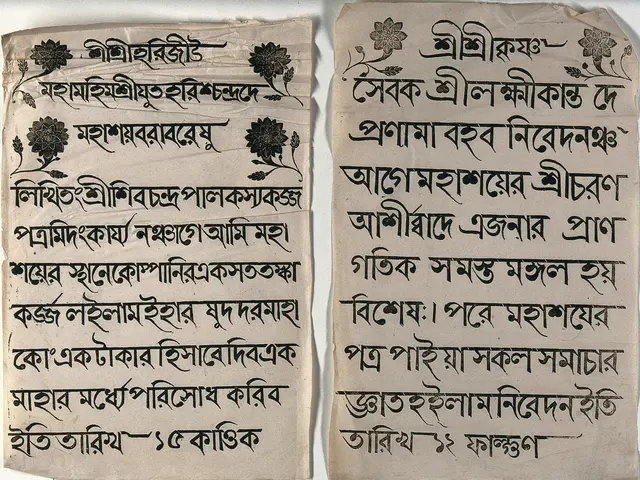 শ্রীশ্রীহরিজীউ
মহামহিমশ্রীযুতহরিশ্চন্দ্রদে
মহাশয়বরাবরেষু
লিখিতংশ্রীশিবচন্দ্রপালকস্যকর্জ্জ
পত্রমিদংকার্য্য নঞ্চাগেআমি মহা
শয়ের স্থানেকোম্পানিরএকসততঙ্কা
কর্জ্জ লইলামইহার ষুদ দরমাহা
কোংএকটাকার হিসাবেদিবএক
মাহার মর্ধ্যেপরিসোধ করিব
ইতিতারিখ ১৫ কার্ত্তিক
শ্রীশ্রীকৃষ্ণ
সেবক শ্রীলক্ষ্মীকান্ত দে
প্রণামা বহব নিবেদনঞ্চ
আগেমহাশয়ের শ্রীচরণ
আশীর্ব্বাদে এজনার প্রাণ
গতিক সমস্ত মঙ্গল হয়
বিশেষঃ। পরে মহাশয়ের
পত্র পাইয়া সকল সমাচার
জ্ঞাতহইলামনিবেদনইতি
তারিখ ১২ ফাল্গুণ